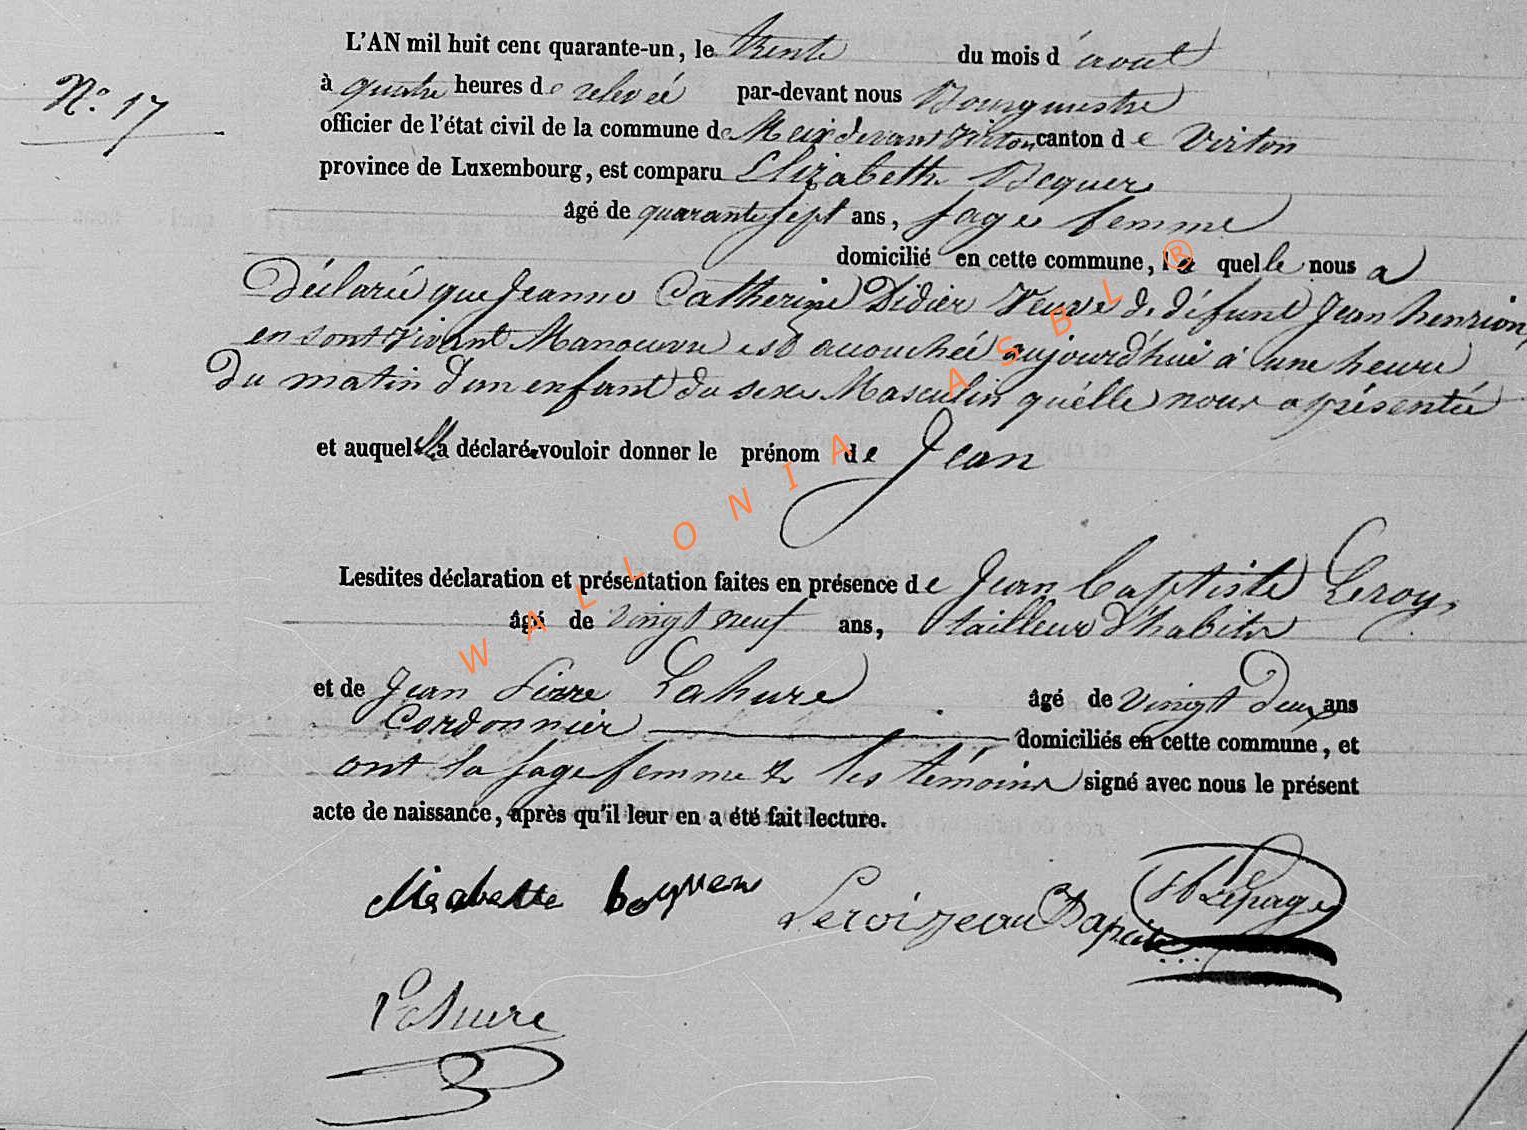 L'AN mil huit cent quarante-un, le trente du mois d'aout
N.o 17
à quatre heures de relevée par-devant nous Bourguestre
officier de l'état civil de la commune de Meix devant Virton canton de Virton
province de Luxembourg, est comparu Elizabeth Bequer
âgé de quarante sept ans, sage femme
domicilié en cette commune, la quelle nous a
Déclaré que Jeanne Catherine Didier Veuve de défunt Jean henrion
en sont vivant Manoeuvre est accouchée aujourd'hui à une heure
Du matin d'un enfant du sexe Masculin qu'elle nous a présentée
et auquel elle a déclaré vouloir donner le prénom de Jean
Lesdites déclaration et présentation faites en présence de Jean Baptiste Leroy,
âgé de vingt neuf ans, tailleur d'habits
et de Jean Pierre Lahure âgé de vingt deux ans
Cordonnier domiciliés en cette commune, et
ont la sage femme & les témoins signé avec nous le présent
acte de naissance, après qu'il leur en a été fait lecture.
Lepage
Leroi Jean Bapiste
Lahure
WALLONIA ASBL ®